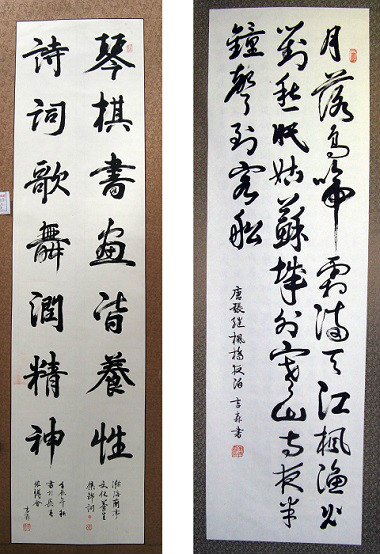 琴棋書畫皆養性
詩詞歌舞潤精神
文化養生
月落烏啼霜滿天江楓漁火
對愁眠姑蘇城外寒山寺夜半
鐘聲到客船
唐張繼楓橋夜泊 書